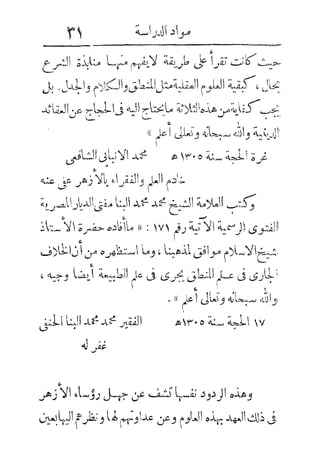 مواد الدراسة ٣١
حيث كانت تقرأ على طريقة لا يفهم منها منابذة الشرع
بحال، كبقية العلوم العقلية مثل المنطق والكلام والجدل. بل
يجب كفاية من هذه الثلاثة ما يحتاج اليه فى الحجاج عن العقائد
الدينية والله سبحانه وتعالى أعلم »
غرة الحجة سنة ١٣٠٥ ه محمد الانبابى الشافعى
خادم العلم والفقراء بالأزهر عفى عنه
وكتب العلامة الشيخ محمد محمد البنا مفتى الديار المصرية
الفتوى الرسمية الآتية رقم ١٧١ : « ما أفاده حضرة الأستاذ
شيخ الاسلام موافق لمذهبنا، وما استظهره من أن الخلاف
الجارى فى علم المنطق يجرى فى علم الطبيعة أيضا وجيه،
والله سبحانه وتعالى أعلم ».
١٧ الحجة سنة ١٣٠٥ه الفقير محمد محمد البنا الحنفى
غفر له
وهذه الردود نفسها تشف عن جهل رؤساء الأزهر
فى ذلك العهد بهذه العلوم وعن عداوتهم لها ونظرهم اليها بعين